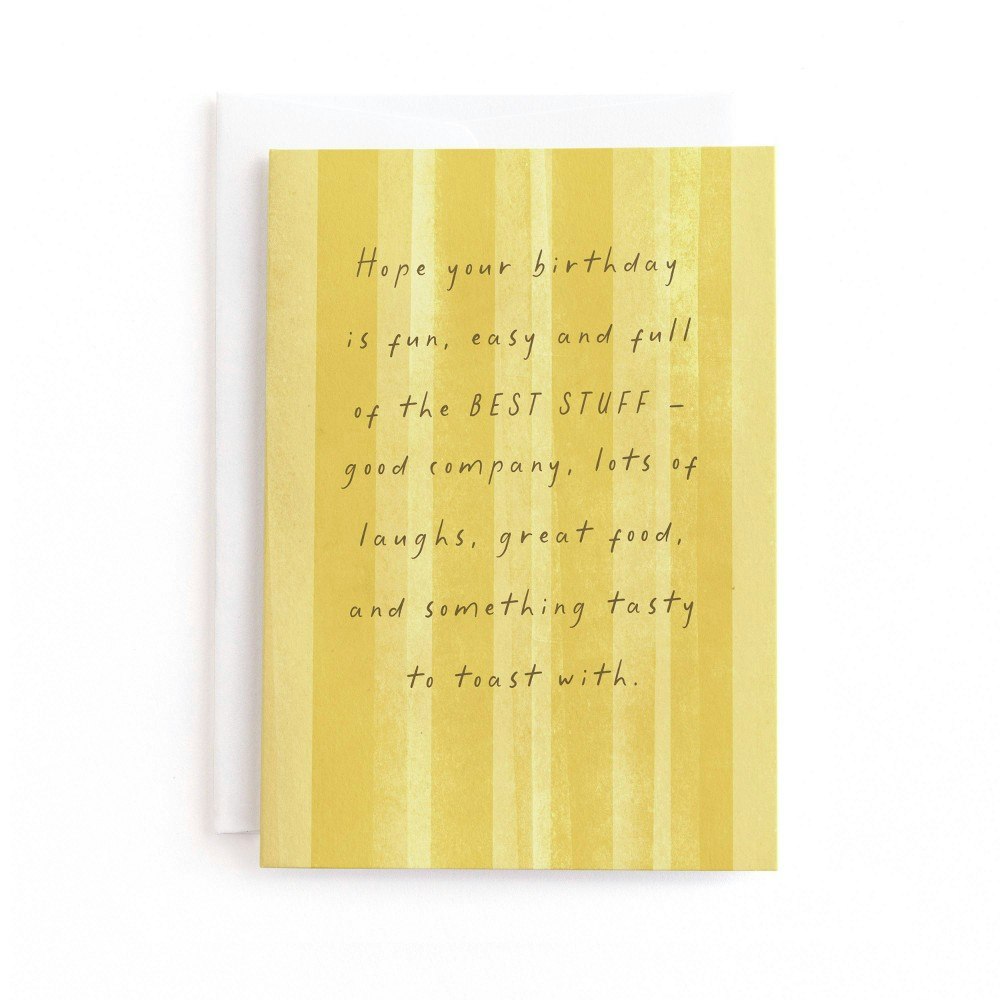 Hope your birthday
is fun, easy and full
of the BEST STUFF –
good company, lots of
laughs, great food,
and something tasty
to toast with.